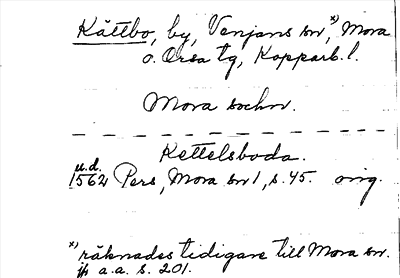 Kättbo, by, Venjans sn,ˣ⁾ Mora
o. Orsa tg, Kopparb. l.
Mora sochn.
Kettelsboda.
u.d.
1562 Pers, Mora sn 1, s. 45. orig.
ˣ⁾ räknades tidigare till Mora sn.
jfr a.a. s. 201.